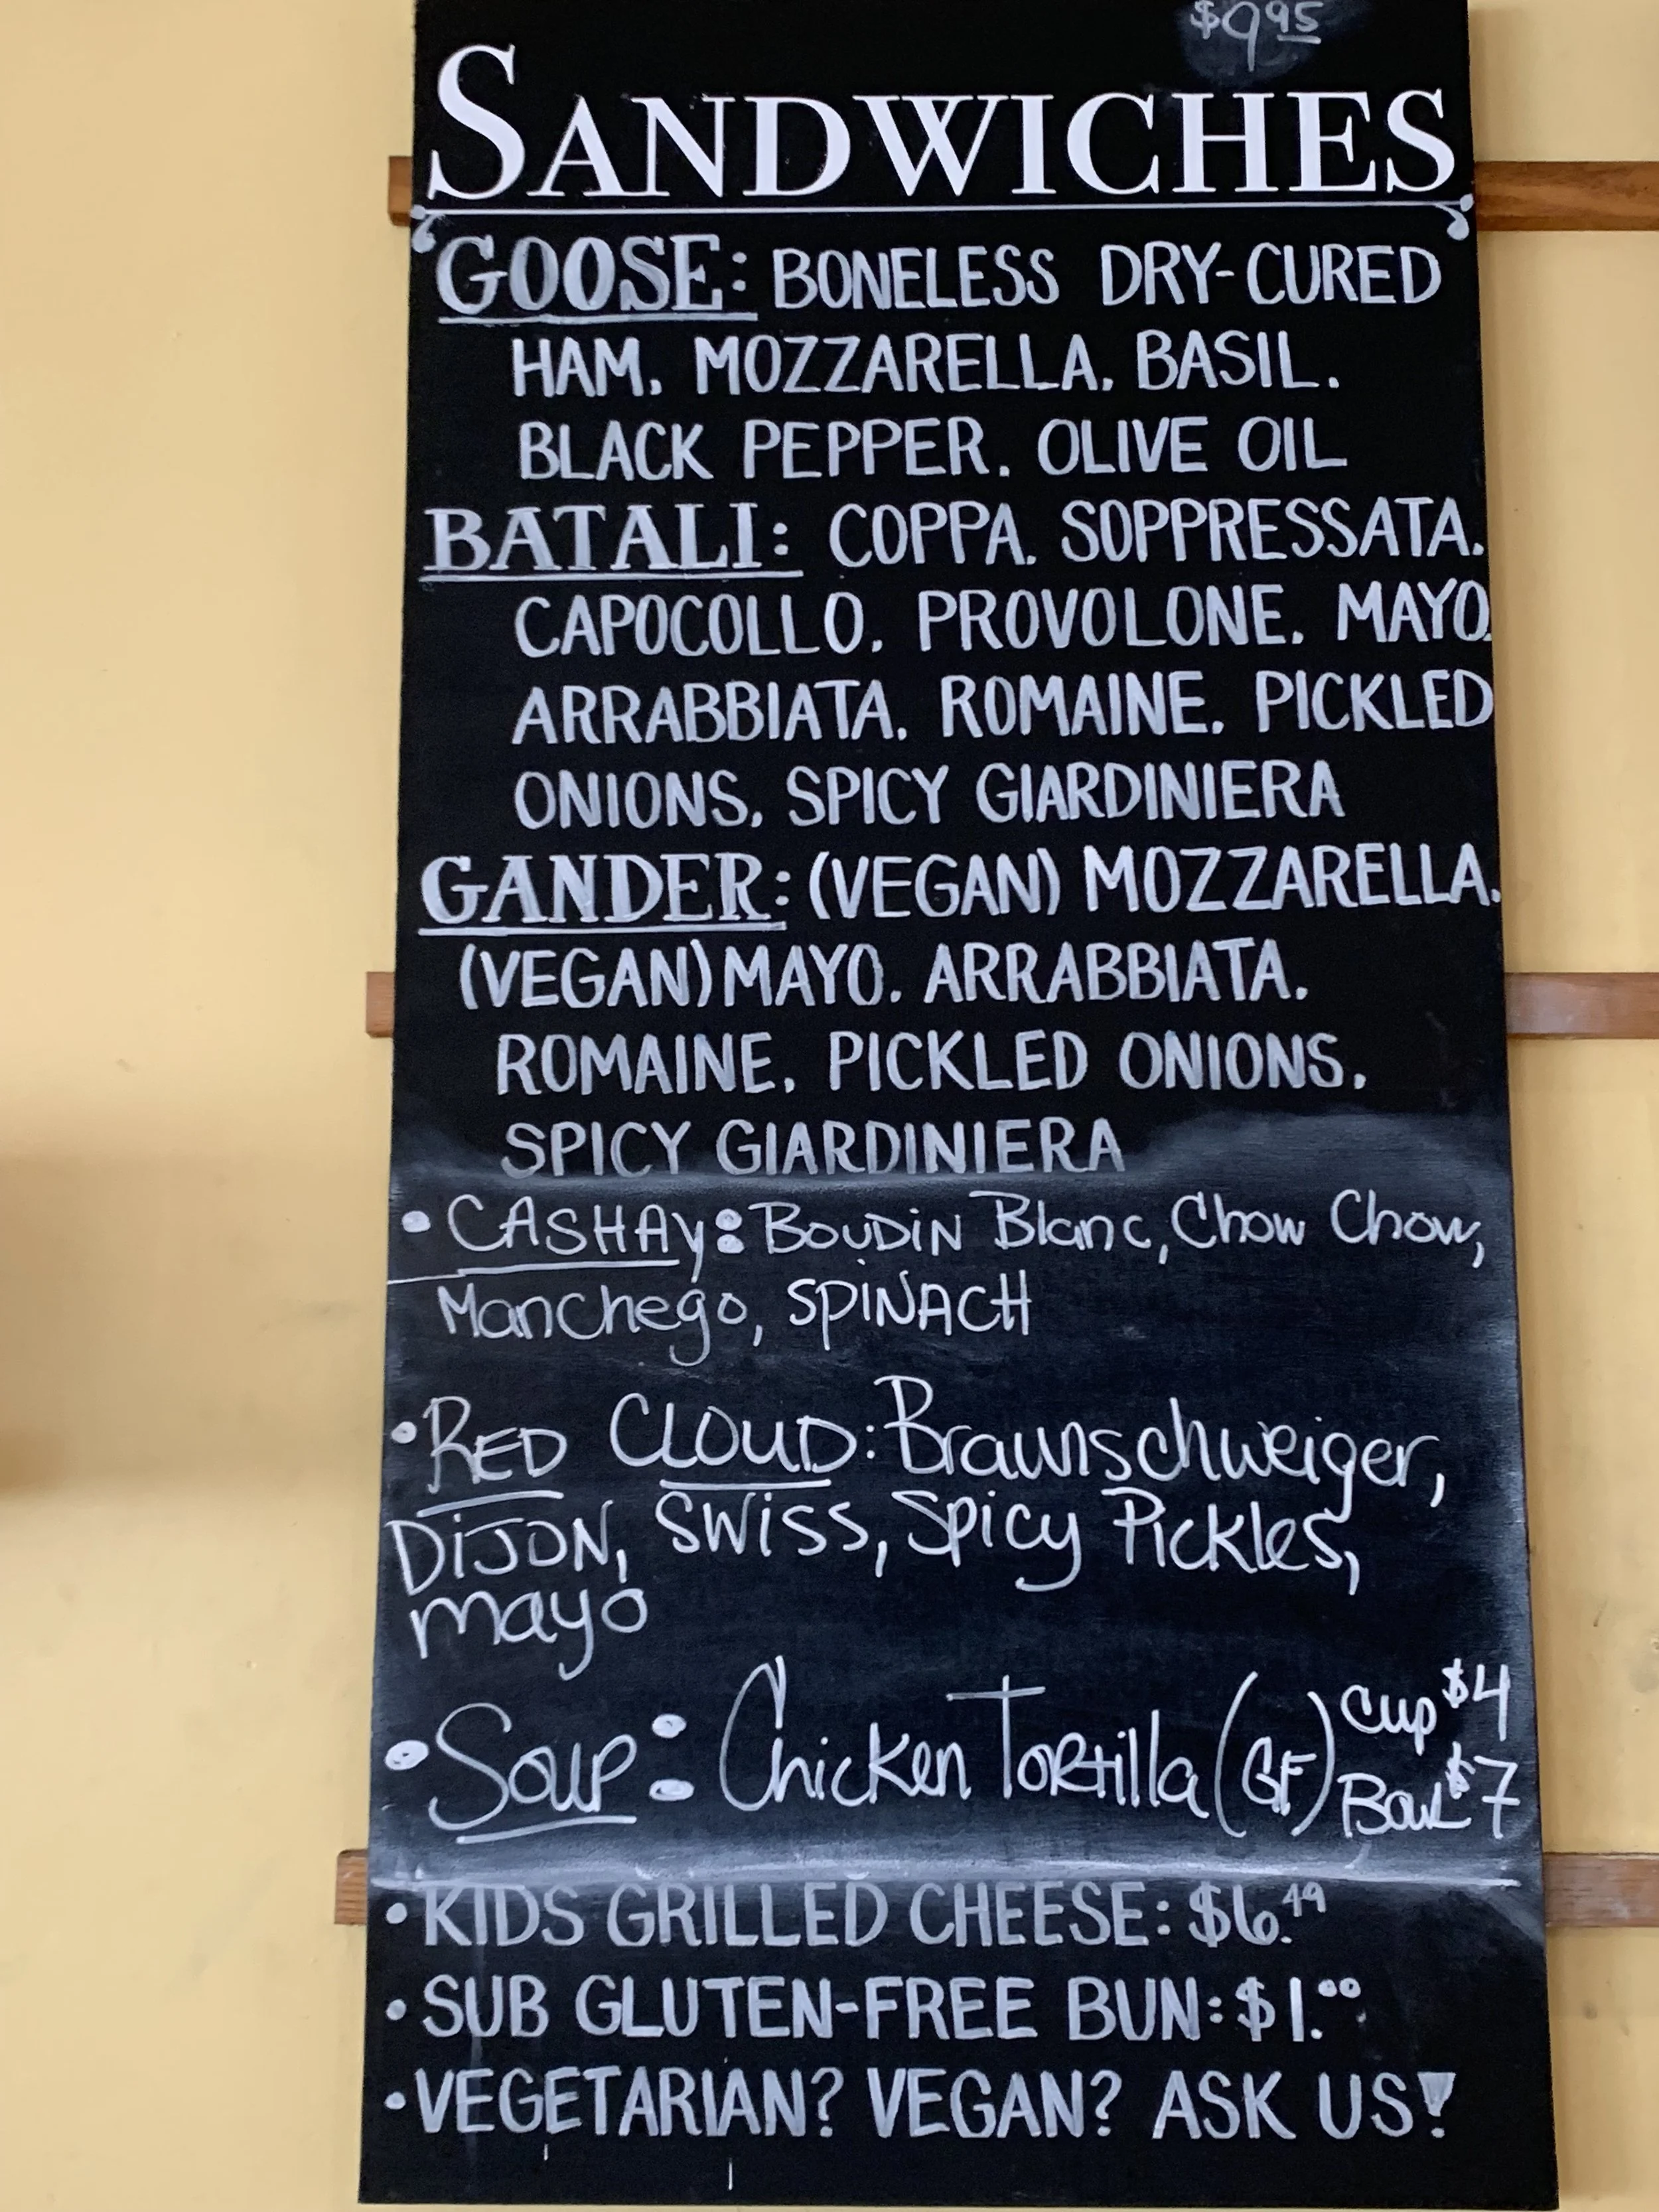 $9.95
SANDWICHES
GOOSE: BONELESS DRY-CURED
HAM, MOZZARELLA, BASIL,
BLACK PEPPER, OLIVE OIL
BATALI: COPPA, SOPPRESSATA,
CAPOCOLLO, PROVOLONE, MAYO,
ARRABBIATA, ROMAINE, PICKLED
ONIONS, SPICY GIARDINIERA
GANDER: (VEGAN) MOZZARELLA,
(VEGAN) MAYO, ARRABBIATA,
ROMAINE, PICKLED ONIONS,
SPICY GIARDINIERA
• CASHAY: BOUDIN Blanc, Chow Chow,
Manchego, SPINACH
• RED CLOUD: Braunschweiger,
DIJON, SWISS, Spicy Pickles,
mayo
• Soup: Chicken Tortilla (GF) Cup $4
Bowl $7
• KIDS GRILLED CHEESE: $6.49
• SUB GLUTEN-FREE BUN: $1.00
• VEGETARIAN? VEGAN? ASK US!